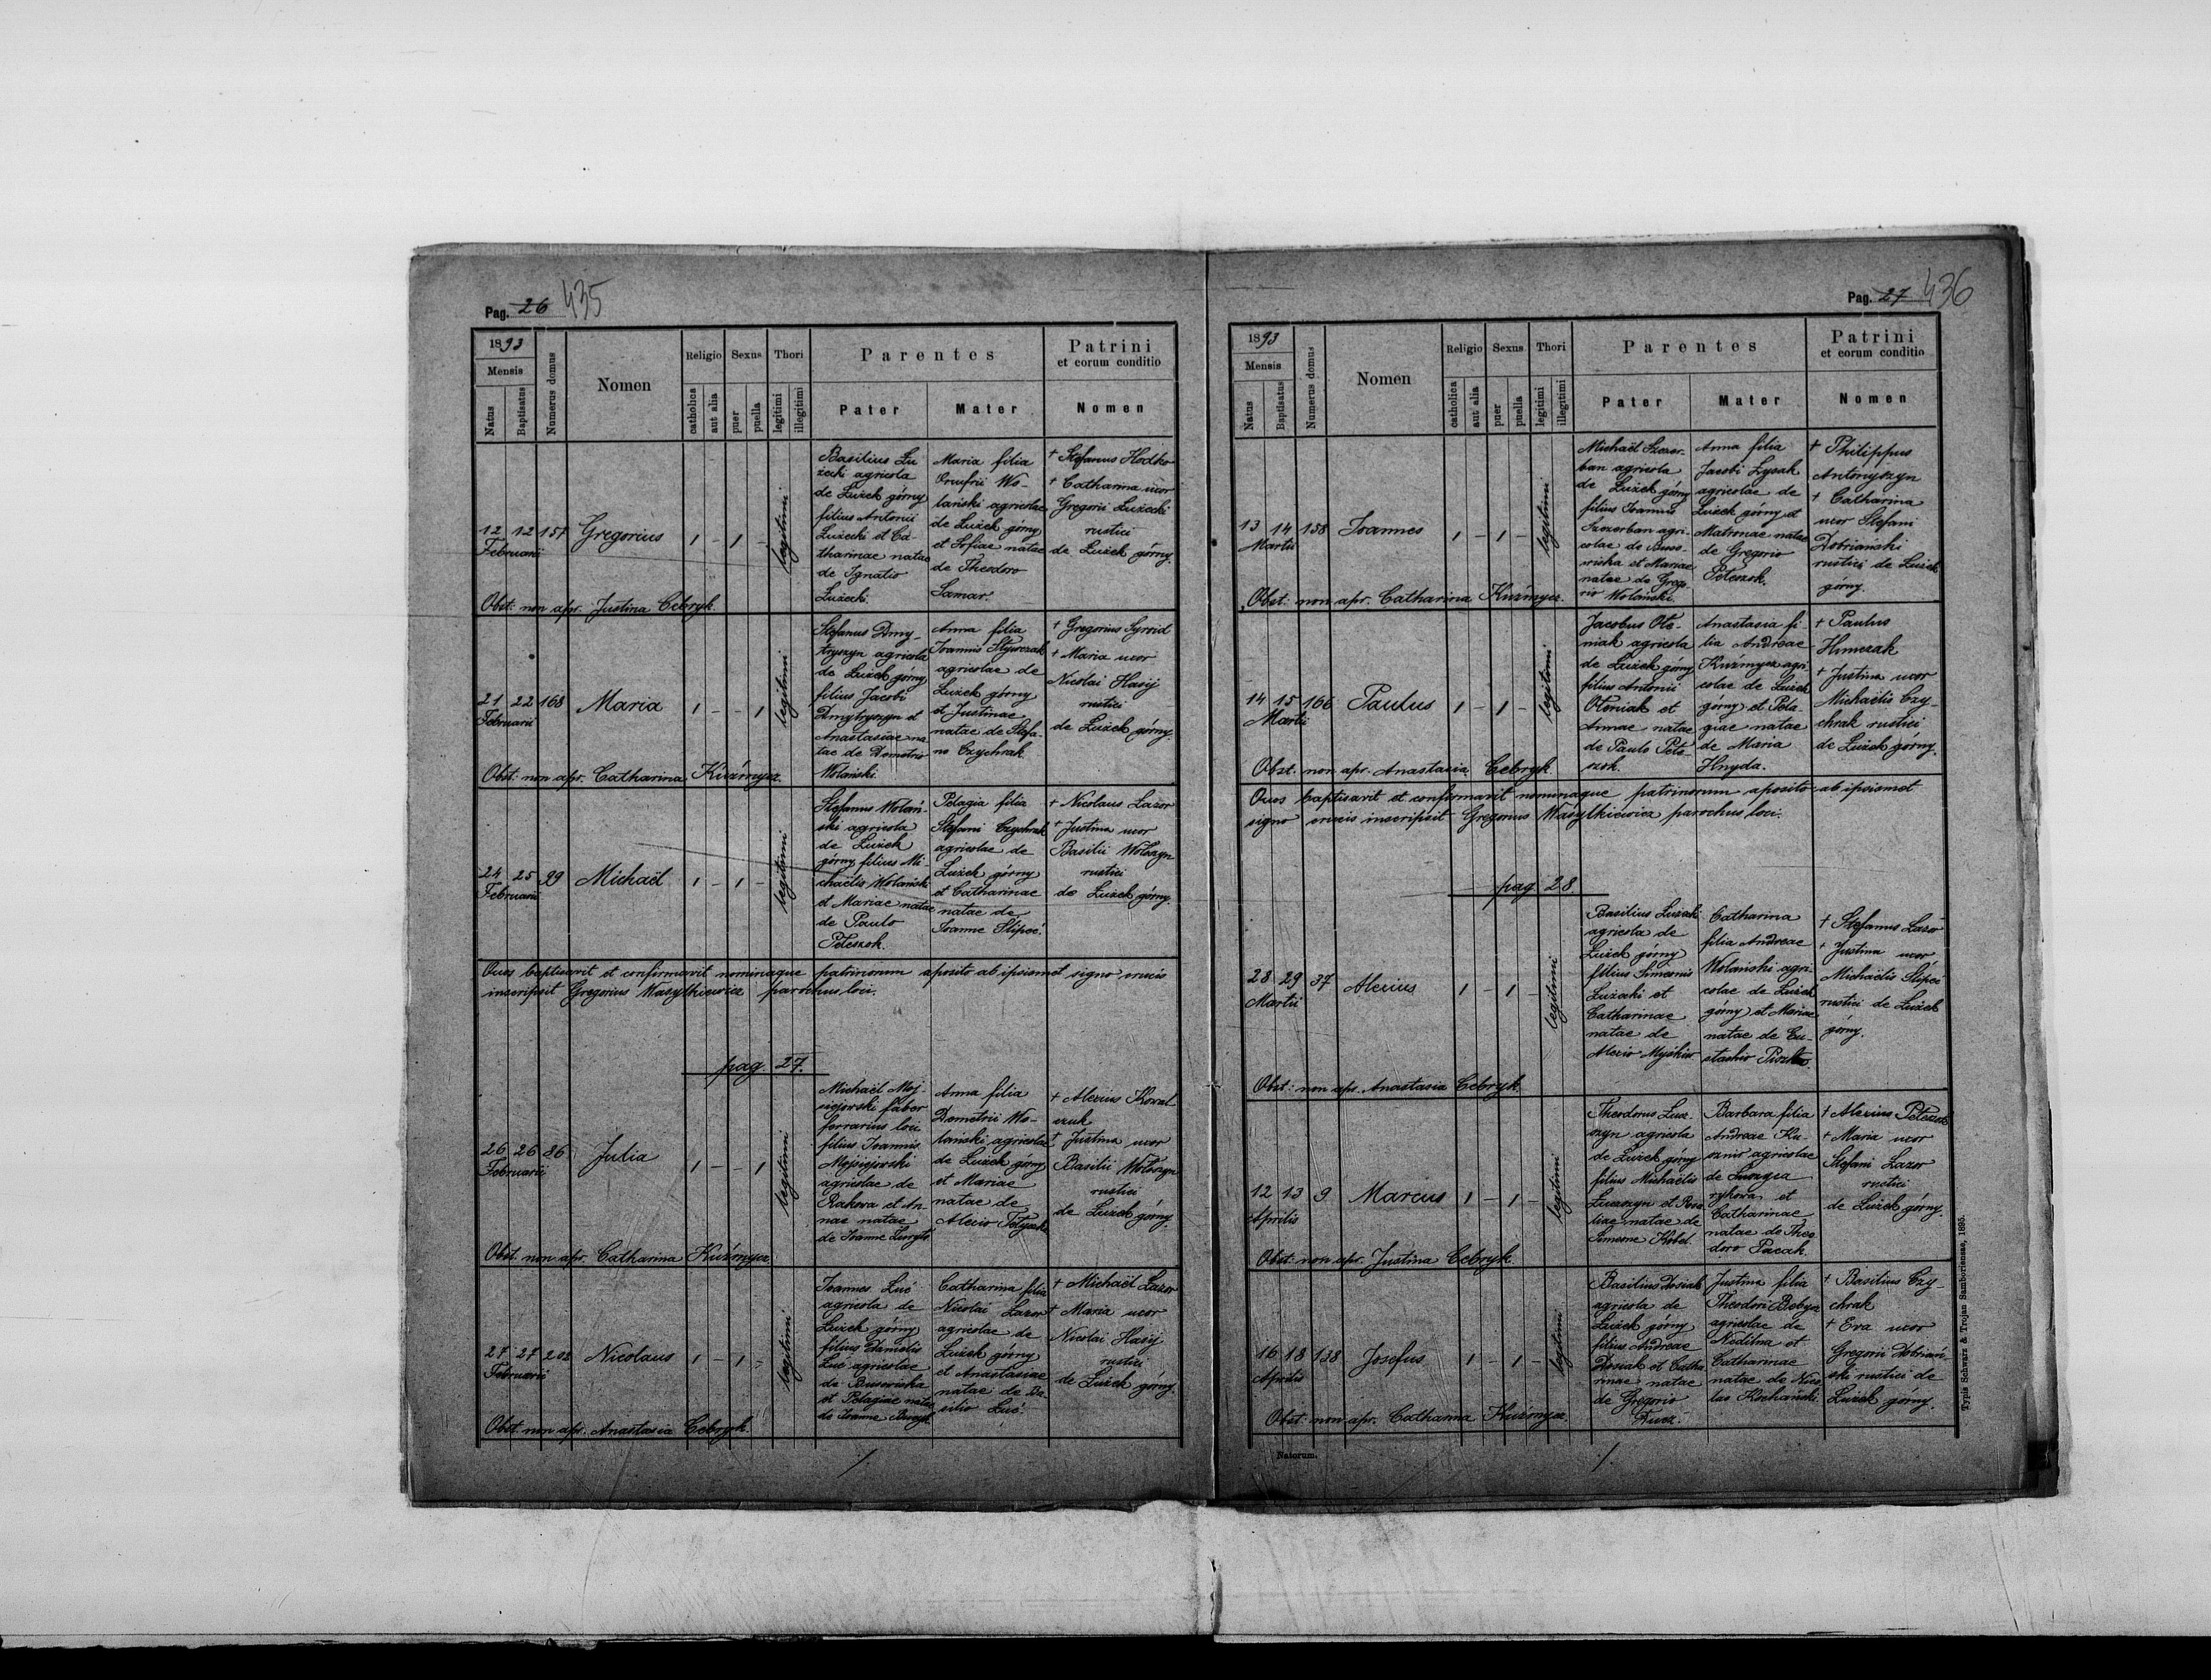 Pag. 26 435
1893
Mensis
Natus
Baptisatus
Numerus domus
Nomen
Religio
catholica
aut alia
Sexus
puer
puella
Thori
legitimi
illegitimi
Parentes
Pater
Mater
Patrini
et eorum conditio
Nomen
12 12 157 Gregorius 1 - 1 - legitimi
Februarii
Basilius Łu
żecki agricola
de Łużek górny
filius Antonii
Łużecki et Ca
tharinae natae
de Ignatio
Łużecki.
Maria filia
Onufrii Wo-
lański agricolae
de Łużek górny
et Sofiae natae
de Theodoro
Lamar.
+ Stefanus Hodko
+ Catharina uxor
Gregorii Łużecki
rustici
de Łużek górny.
Obst: non apr. Justina Cebryk.
21 22 168 Maria 1 - - 1 legitimi
Februarii
Stefanus Dmy-
tryszyn agricola
de Łużek górny
filius Jacobi
Dmytryszyn et
Anastasiae na
tae de Demetrio
Wolański.
Anna filia
Joannis
agricolae de
Łużek górny
et Justinae
natae de Stefa-
no Czychrak
+ Gregorius Syroid
+ Maria uxor
Nicolai Hasij
rustici
de Łużek górny.
Obst: non apr. Catharina Kuźmycz.
24 25 99 Michaël 1 - 1 - legitimi
Februarii
Stefanus Wolań-
ski agricola
de Łużek
górny filius Mi-
chaëlis Wolański
et Mariae natae
de Paulo
Peteszok.
Pelagia filia
Stefani Czychrak
agricolae de
Łużek górny
et Catharinae
natae de
Joanne Slipeć.
+ Nicolaus Łazor
+ Justina uxor
Basilii Wołszyn
rustici
de Łużek górny.
Quos baptisavit et confirmavit nominaque patrinorum aposito ab ipsismet signo crucis
inscripsit Gregorius Wasylkiewicz parochus loci.
pag. 27.
26 26 86 Julia 1 - - 1 legitimi
Februarii
Michaël Moj-
siejowski faber
ferrarius loci
filius Joannis
Mojsiejowski
agricolae de
Rakowa et An-
nae natae
de Joanne
Anna filia
Demetrii Wo-
lański agricolae
de Łużek górny
et Mariae
natae de
Alexio
+ Alexius Kowal
czuk
+ Justina uxor
Basilii Wołszyn
rustici
de Łużek górny.
Obst: non apr. Catharina Kuźmycz
27 27 202 Nicolaus 1 - 1 - legitimi
Februarii
Joannes Luć
agricola de
Łużek górny
filius Danielis
Luć agricolae
de Busowiska
et Pelagiae natae
de Joanne
Catharina filia
Nicolai Łazor
agricolae de
Łużek górny
et Anastasiae
natae de Ba-
silio Luć.
+ Michaël Łazor
+ Maria uxor
Nicolai Hasij
rustici
de Łużek górny.
Obst: non apr. Anastasia Cebryk.
Pag. 27 436
1893
Mensis
Natus
Baptisatus
Numerus domus
Nomen
Religio
catholica
aut alia
Sexus
puer
puella
Thori
legitimi
illegitimi
Parentes
Pater
Mater
Patrini
et eorum conditio
Nomen
13 14 158 Joannes 1 - 1 - legitimi
Martii
Michaël Szczer-
ban agricola
de Łużek górny
filius Joannis
Szczerban agri-
colae de Buso-
wiska et Mariae
natae de Grego-
rio Wolański.
Anna filia
Jacobi Łysak
agricolae de
Łużek górny et
Matronae natae
de Gregorio
Peteszok.
+ Philippus
Antonyszyn
+ Catharina
uxor Stefani
Dobriański
rustici de Łużek
górny.
Obst: non apr. Catharina Kuźmycz.
14 15 166 Paulus 1 - 1 - legitimi
Martii
Jacobus Ole-
niak agricola
de Łużek górny
filius Antonii
Oleniak et
Annae natae
de Paulo Pete-
szok.
Anastasia fi-
lia Andreae
Kuźmycz agri
colae de Łużek
górny et Pela-
giae natae
de Maria
Hnyda.
+ Paulus
Himczak
+ Justina uxor
Michaëlis Czy-
chrak rustici
de Łużek górny.
Obst. non apr. Anastasia Cebryk
Quos baptisavit et confirmavit nominaque patrinorum aposito ab ipsismet
signo crucis inscripsit Gregorius Wasylkiewicz parochus loci.
pag 28.
28 29 37 Alexius 1 - 1 - legitimi
Martii
Basilius Łużecki
agricola de
Łużek górny
filius Simeonis
Łużecki et
Catharinae
natae de
Alexio Myśkiw
Catharina
filia Andreae
Wolański agri-
colae de Łużek
górny et Mariae
natae de Eu-
stachio
+ Stefanus Łazor
+ Justina uxor
Michaëlis Slipeć
rustici de Łużek
górny.
Obst: non apr. Anastasia Cebryk.
12 13 9 Marcus 1 - 1 - legitimi
Aprilis
Theodorus Łuc-
zyn agricola
de Łużek górny
filius Michaëlis
et Rosa
liae natae de
Simeone Kobel.
Barbara filia
Andreae Ku-
agricolae
de
et
Catharinae
natae de Theo
doro Pacak.
+ Alexius Peteszok
+ Maria uxor
Stefani Łazor
rustici
de Łużek górny.
Obst: non apr. Justina Cebryk.
16 18 138 Josefus 1 - 1 - legitimi
Aprilis
Basilius Dosiak
agricola de
Łużek górny
filius Andreae
Dosiak et Catha
rinae natae
de Gregorio
Justina filia
Theodori
agricolae de
Nedilna et
Catharinae
natae de Nico
lao Kochański.
+ Basilius Czy-
chrak
+ Eva uxor
Gregorii Dobriań-
ski rustici de
Łużek górny.
Obst: non apr. Catharina Kuźmycz.
Natorum.
Typis Schwarz & Trojan Samboriensae, 1895.